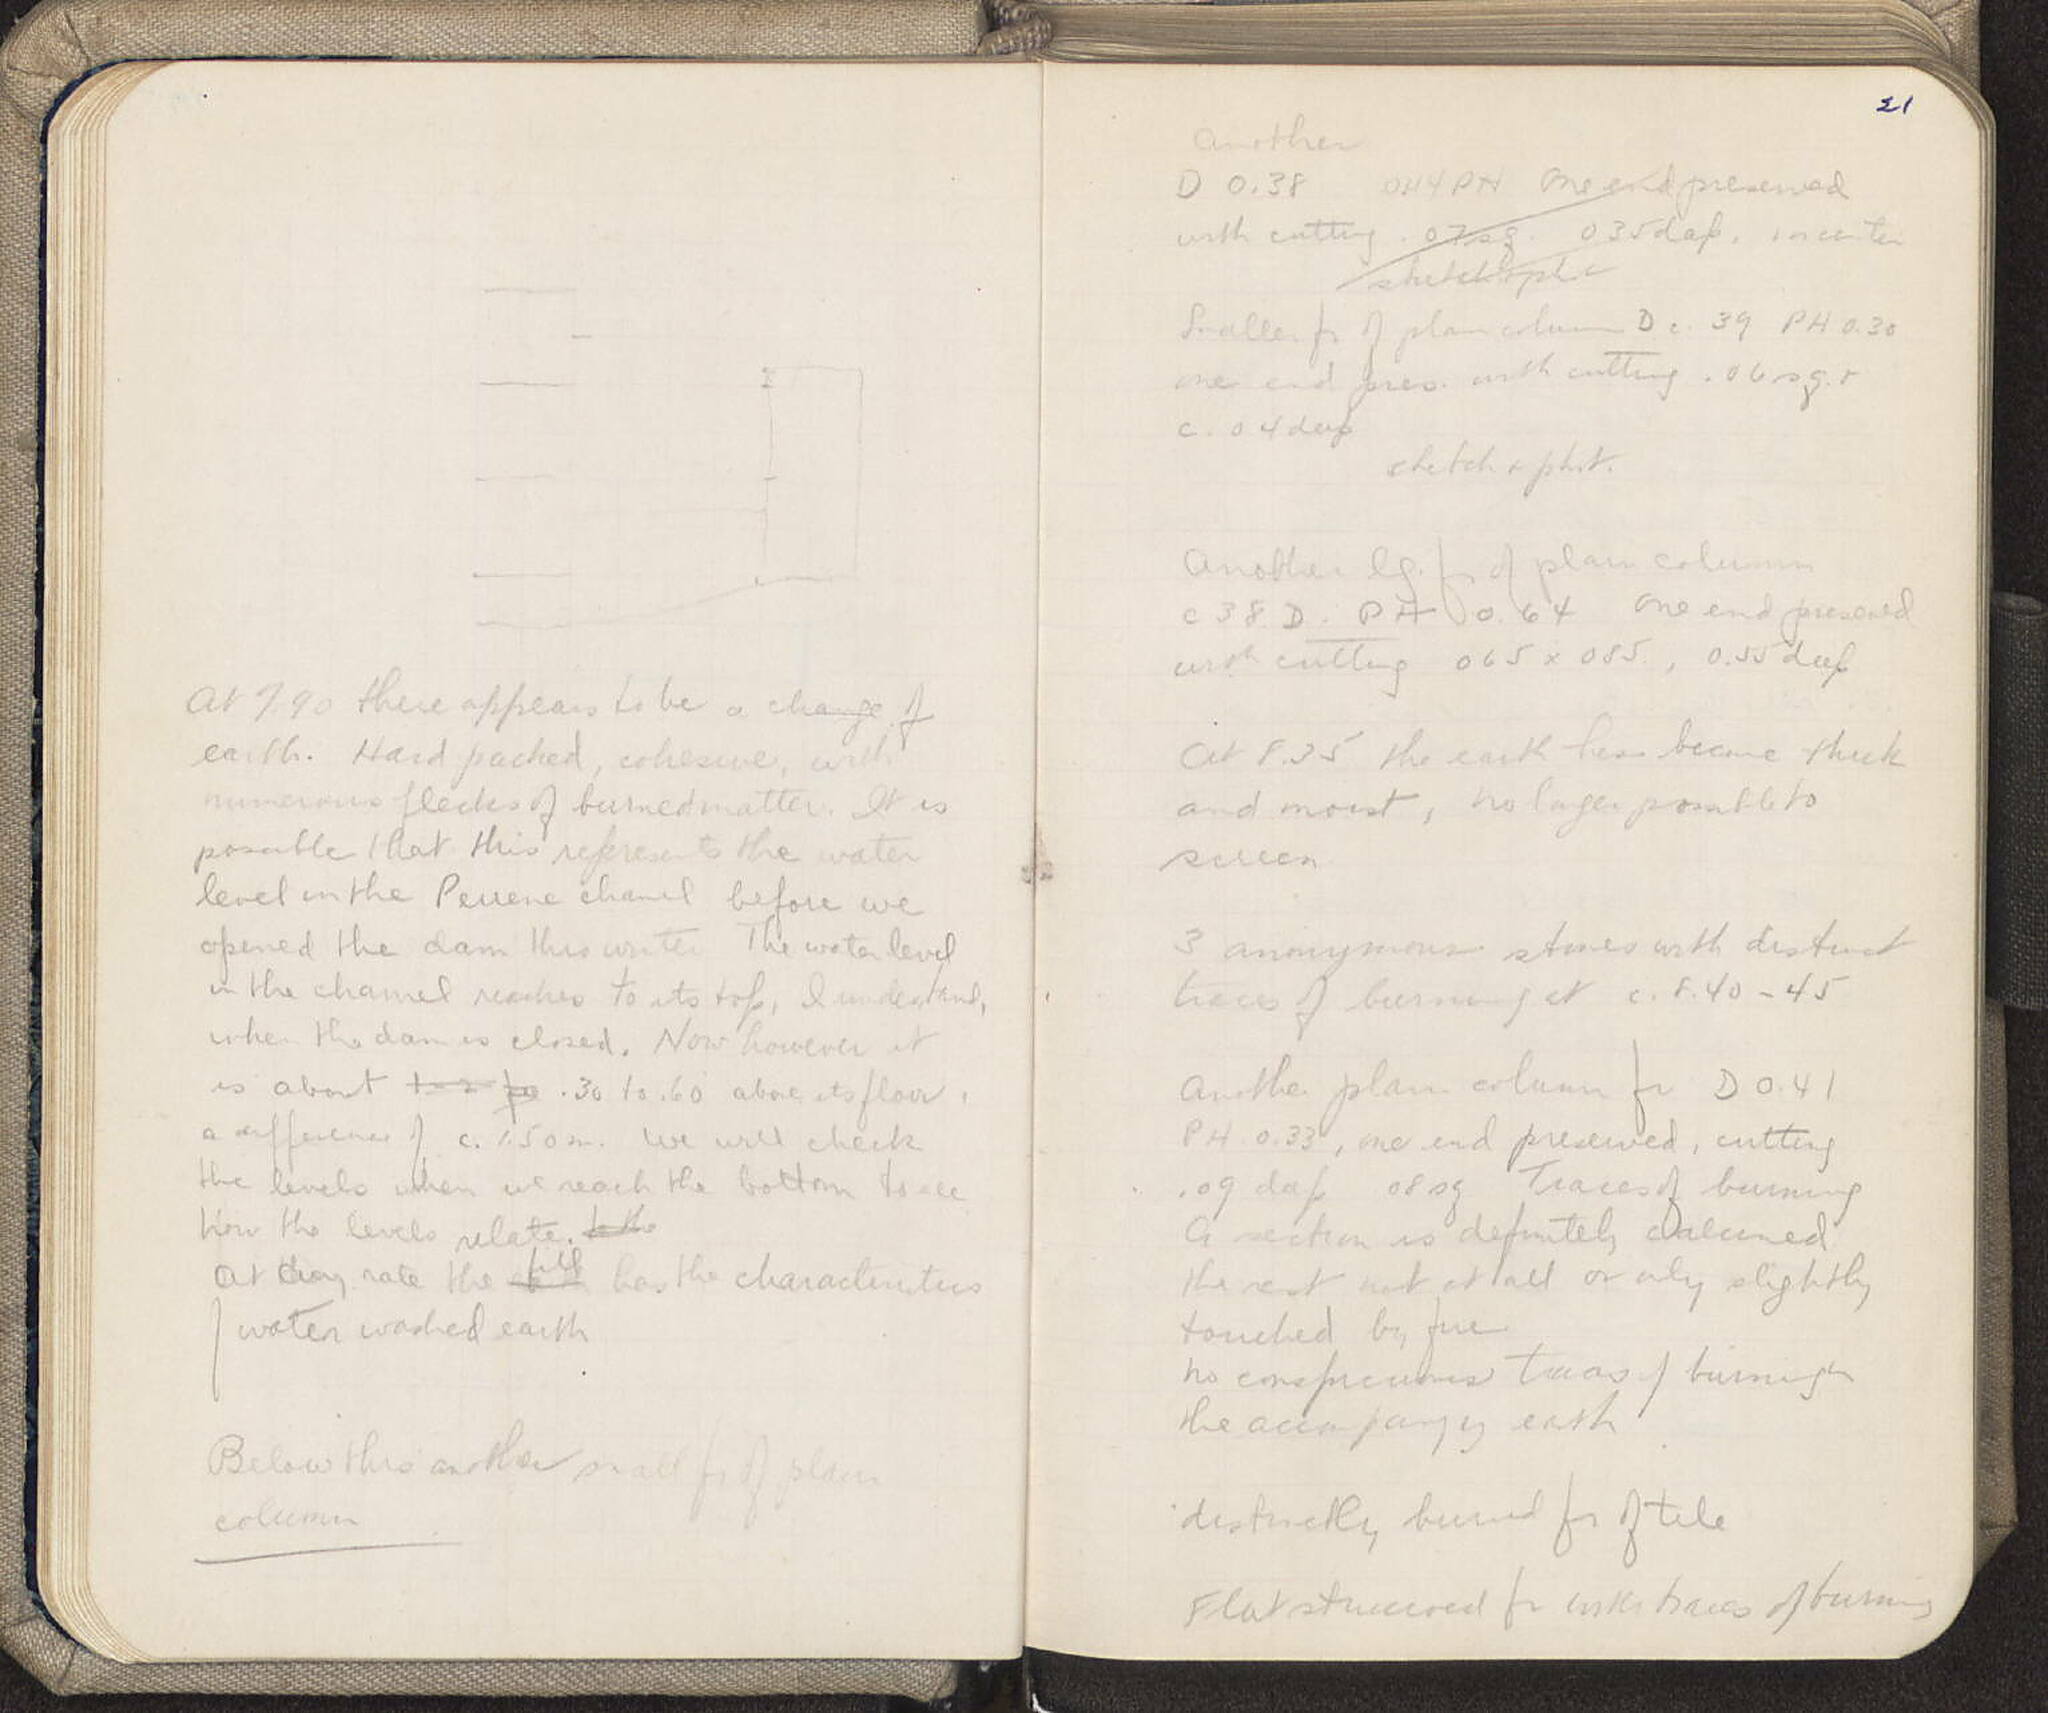 At 7.90 there appears to be a change of
earth. Hard packed, cohesive, with
numerous flecks of burned matter. It is
possible that this represents the water
level in the Peirene chanel before we
opened the dam this winter The water level
in the channel reaches to its top, I understand,
when the dam is closed. Now however it
is about .30 to .60 above its floor,
a difference of c. 1.50 m. We will check
the levels when we reach the bottom to see
how the levels relate. to the
At any rate the fill has the characteristics
of water washed earth
Below this another small fr of plain
column
21
Another
D 0.38 0.44 PH One end preserved
with cutting .07 sq. 035 deep. in center
sketch & phot
Smaller fr of plain column D c. 39 PH 0.30
one end pres. with cutting .06 sq. &
c. 04 deep
sketch & phot.
Another lg. fr of plain column
c 38 D. PH 0.64 One end preserved
with cutting 065 x 085, 0.55 deep
At 8.35 the earth has become thick
and moist, no longer possible to
screen
3 anonymous stones with distinct
traces of burning at c. 8.40 - 45
Another plain column fr D 0.41
PH 0.33, one end preserved, cutting
.09 deep 08 sq Traces of burning
A section is definitely calcined
the rest not at all or only slightly
touched by fire
No conspicuous traces of burning in
the accompanying earth
distinctly burned fr of tile
Flat stuccoed fr with traces of burning